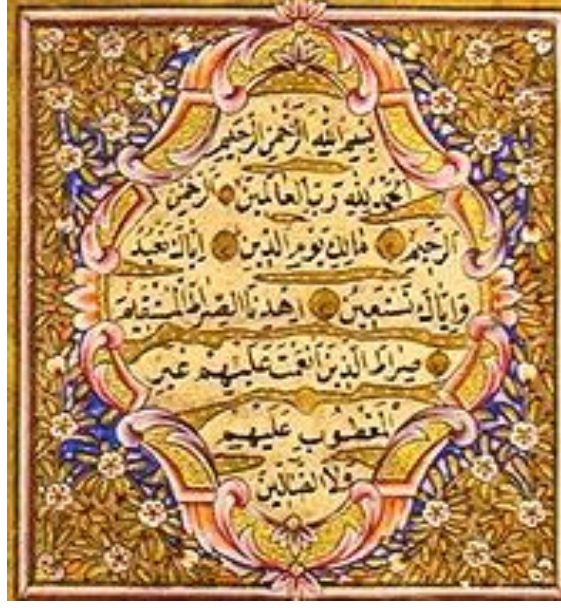 بِسْمِ اللهِ الرَّحْمٰنِ الرَّحِيمِ
الْحَمْدُ لِلّٰهِ رَبِّ الْعَالَمِينَ الرَّحْمٰنِ
الرَّحِيمِ مَالِكِ يَوْمِ الدِّينِ إِيَّاكَ نَعْبُدُ
وَإِيَّاكَ نَسْتَعِينُ اِهْدِنَا الصِّرَاطَ الْمُسْتَقِيمَ
صِرَاطَ الَّذِينَ اَنْعَمْتَ عَلَيْهِمْ غَيْرِ
الْمَغْضُوبِ عَلَيْهِمْ
وَلَا الضَّالِّينَ